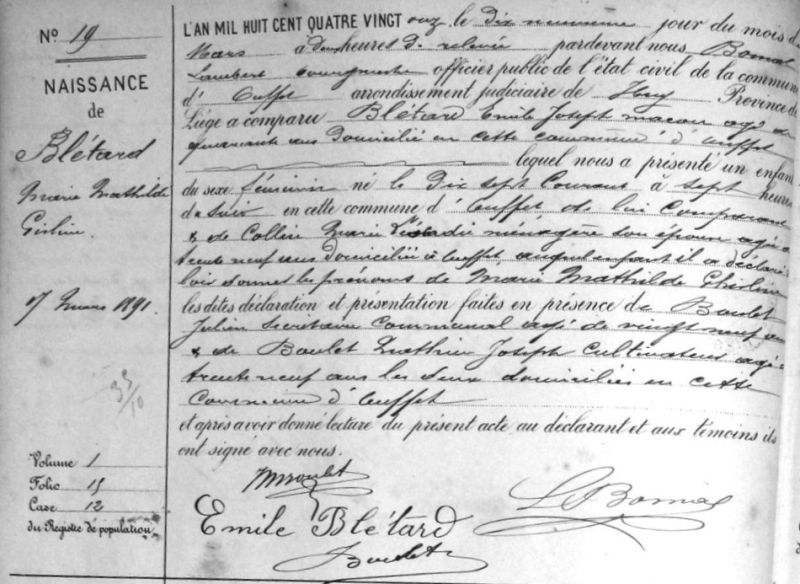 N° 19
NAISSANCE
de
Blétard
Marie Mathilde
Gisline.
17 mars 1891.
35/10
Volume 1
Folio 15
Case 12
du Registre de population
L'AN MIL HUIT CENT QUATRE VINGT onz le dix neuvieme jour du mois de
Mars à deux heures d. relevée pardevant nous Bomal
Lambert bourgmestre officier public de l'état civil de la commune
d' Ouffet arrondissement judiciaire de Huy Province de
Liége a comparu Blétard Emile Joseph macon agé de
quarante ans Domicilié en cette commune d'ouffet
lequel nous a présenté un enfant
du sexe féminin né le Dix sept Courant à sept heures
du soir en cette commune d'Ouffet, de lui Comparant
& de Collin Marie ménagère son épouse agée
trente neuf ans Domiciliée à Ouffet, auquel enfant il a déclaré
loir donner les prénoms de Marie Mathilde Ghisline
les dites déclaration et présentation faites en présence de Boulet
Julien Secrétaire Communal agé de vingt neuf ans
& de Boulet Mathieu Joseph Cultivateur agé
trente neuf ans les deux domiciliés en cette
Commune d'Ouffet
et après avoir donné lecture du présent acte au déclarant et aux témoins ils
ont signé avec nous.
L Bomal
Emile Blétard
Boulet